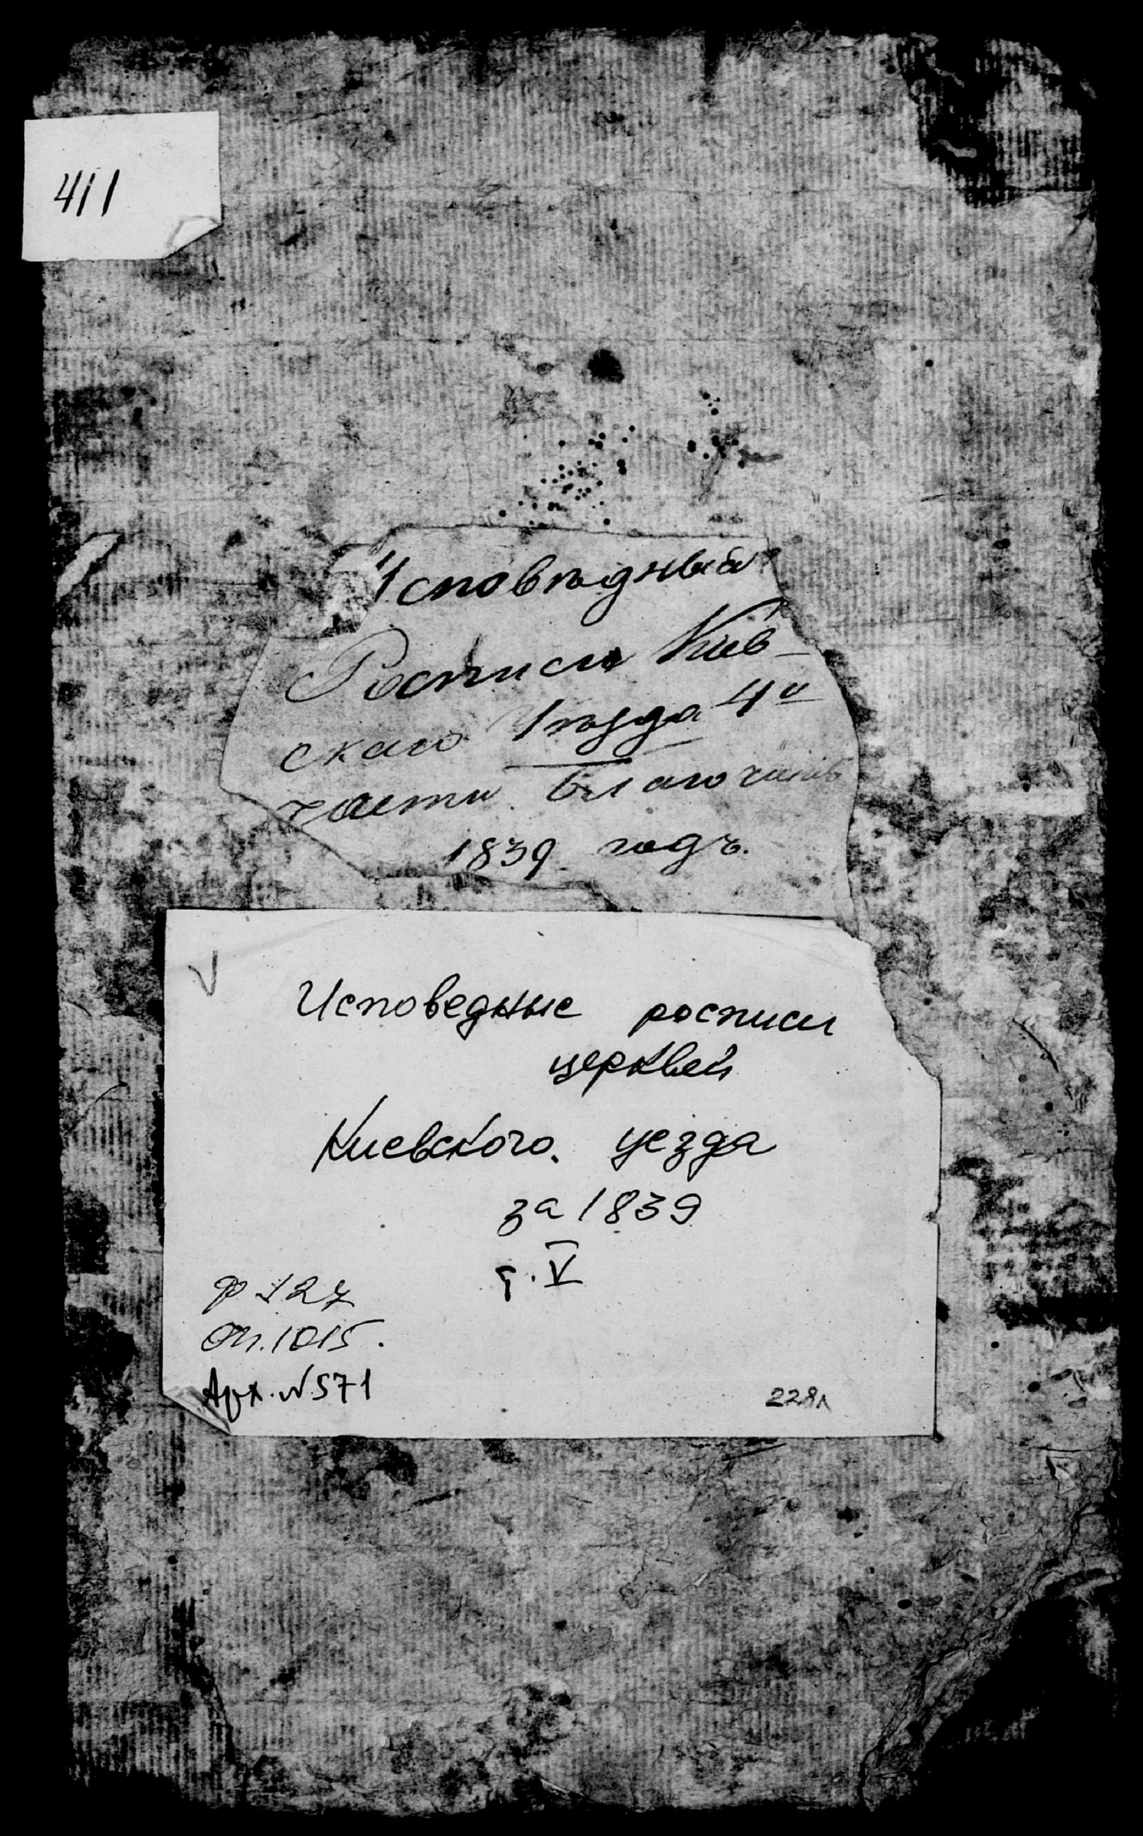 411
Исповѣдныя
Росписи Кіев-
скаго Уѣзда 4й
части Благочинія
1839 годъ.
Исповедные росписи
церквей
Киевского. уезда
за 1839
ч. V
ф 127
оп. 1015.
Арх. № 571
228л